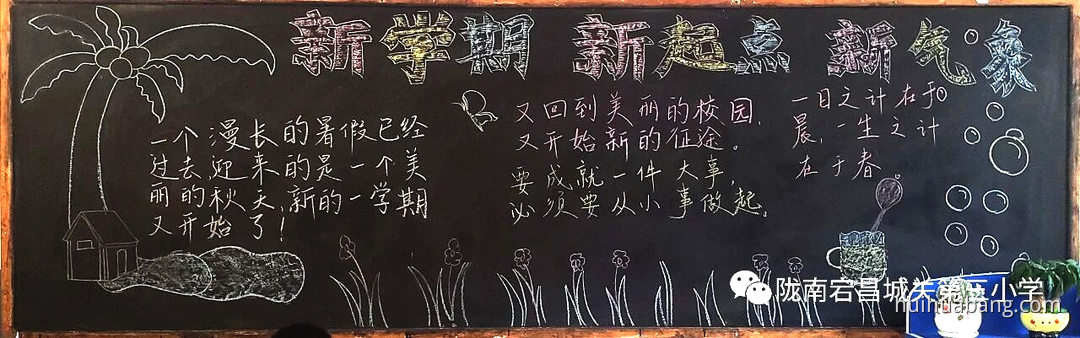 新学期 新起点 新气象
一个漫长的暑假已经
过去,迎来的是一个美
丽的秋天,新的一学期
又开始了!
又回到美丽的校园,
又开始新的征途。
要成就一件大事,
必须要从小事做起。
一日之计在于
晨,一生之计
在于春
陇南宕昌城关第三小学
huihuabang.com